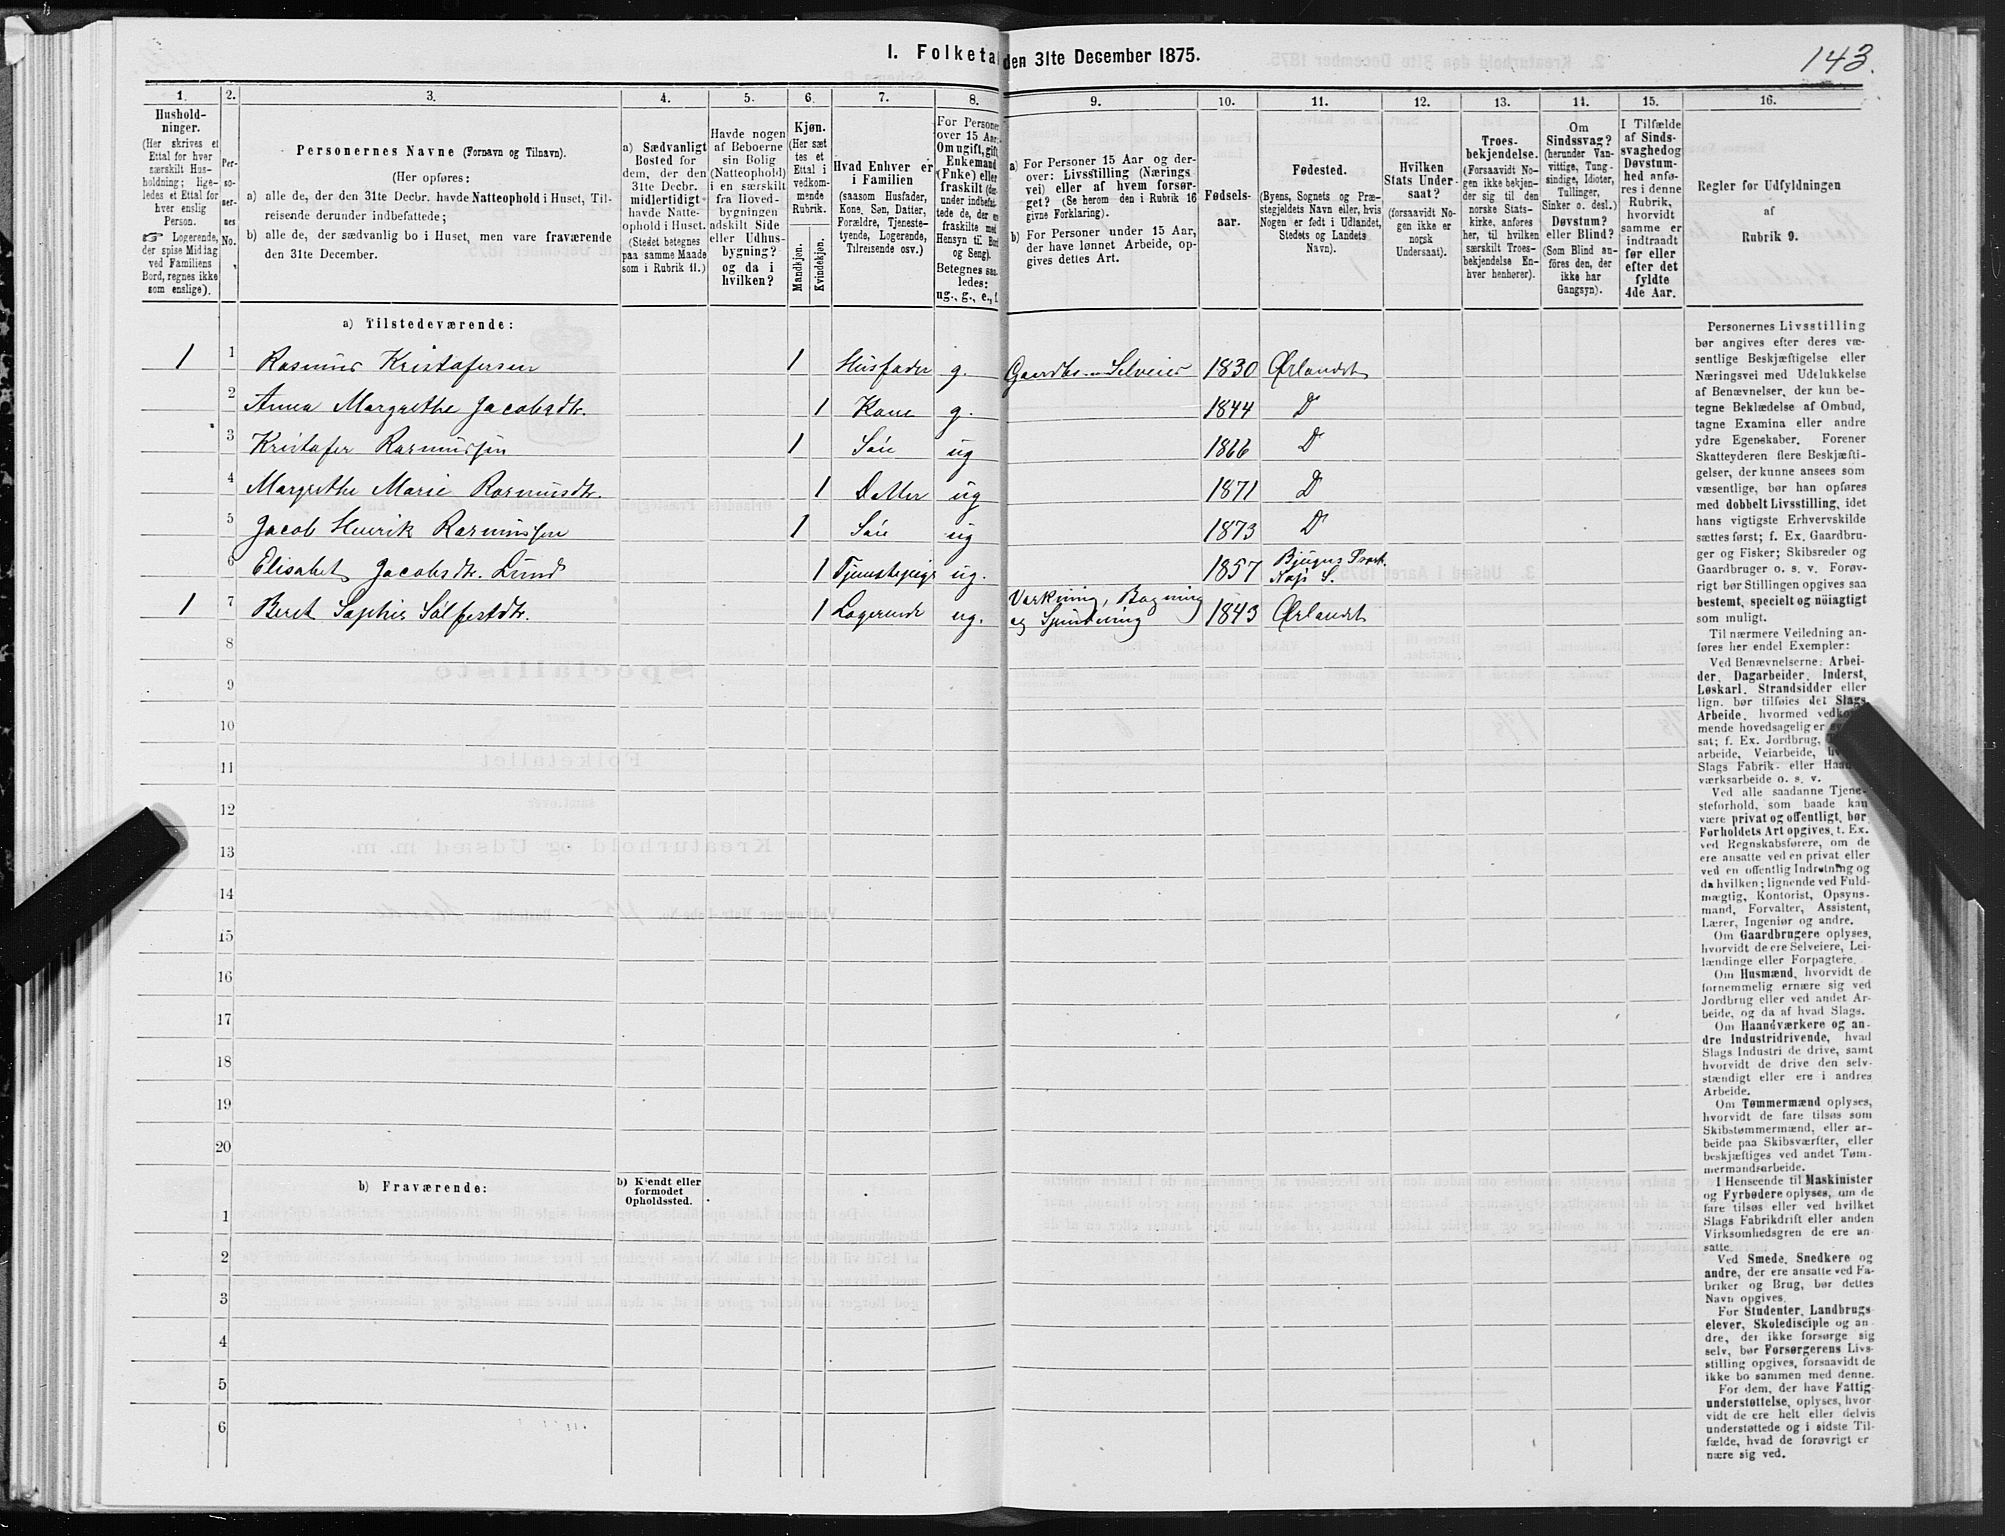 143.
I. Folketal den 31te December 1875.
1. 2. 3. 4. 5. 6. 7. 8. 9. 10. 11. 12. 13. 14. 15. 16.
Hushold-
ninger.
(Her skrives et
Ettal for hver
særskilt Hus-
holdning; lige-
ledes et Ettal for
hver enslig
Person.
☞ Logerende,
der spise Middag
ved Familiens
Bord, regnes ikke
som enslige).
Per-
so-
ner-
nes
No.
Personernes Navne (Fornavn og Tilnavn).
(Her opføres:
a) alle de, der den 31te Decbr. havde Natteophold i Huset, Til-
reisende derunder indbefattede;
b) alle de, der sædvanlig bo i Huset, men vare fraværende
den 31te December.
a) Sædvanligt
Bosted for
dem, der den
31te Decbr.
midlertidigt
havde Natte-
ophold i Huset.
(Stedet betegnes
paa samme Maade
som i Rubrik 11.)
Havde nogen
af Beboerne
sin Bolig
(Natteophold)
i en særskilt
fra Hoved-
bygningen
adskilt Side
eller Udhus-
bygning?
og da i
hvilken?
Kjøn.
(Her sæt
tes et
Ettal i
vedkom-
mende
Rubrik.
Mandkjøn.
Kvindekjøn.
Hvad Enhver er
i Familien
(saasom Husfader,
Kone, Søn, Datter,
Forældre, Tjeneste-
tyende, Logerende,
Tilreisende osv.)
For Personer
over 15 Aar:
Om ugift, gift,
Enkemand
(Enke) eller
fraskilt (der-
under indbefat-
tede de, der ere
fraskilte med
Hensyn til Bord
og Seng).
Betegnes saa-
ledes:
ug., g., e., f.
a) For Personer 15 Aar og der-
over: Livsstilling (Nærings
vei) eller af hvem forsør-
get? (Se herom den i Rubrik 16
givne Forklaring).
b) For Personer under 15 Aar,
der have lønnet Arbeide, op-
gives dettes Art.
Fødsels-
aar.
Fødested.
(Byens, Sognets og Præ-
stegjeldets Navn eller, hvis
Nogen er født i Udlandet,
Stedets og Landets
Navn).
Hvilken
Stats Under-
saat?
(forsaavidt No-
gen ikke er
norsk
Undersaat).
Troes-
bekjendelse.
(Forsaavidt No-
gen ikke bekjen-
der sig til den
norske Stats-
kirke, anføres
her, til hvilken
særskilt Troes-
bekjendelse En-
hver henhører).
Om
Sindssvag?
(herunder Van-
vittige, Tung-
sindige, Idioter,
Tullinger,
Sinker o. desl.)
Døvstum?
eller Blind?
(Som Blind an-
føres den, der
ikke har
Gangsyn).
I Tilfælde
af Sinds-
svaghed og
Døvstum-
hed anfø-
res i denne
Rubrik,
hvorvidt
samme er
indtraadt
før eller
efter det
fyldte
4de Aar.
Regler for Udfyldningen
af
Rubrik 9.
a) Tilstedeværende:
1 1 Rasmus Kristofersen 1 Husfader g. Gaardbr. Selveier 1830 Ørlandet
2 Anna Margrethe Jacobsdtr. 1 Kone g. 1844 D
3 Kristofer Rasmussen 1 Søn ug 1866 D
4 Margrethe Marie Rasmusdtr. 1 Datter ug 1871 D
5 Jacob Henrik Rasmussen 1 Søn ug 1873 D
6 Elisabet Jacobsdtr. Lund 1 Tjenestepige ug. 1857 Bjugns S.
1 7 Beret Sophie Solfestdtr. 1 Logerende ug. og Spinding 1843 Ørlandet
8
9
10
11
12
13
14
15
16
17
18
19
20
b) Fraværende:
b) Kjendt eller
formodet
Opholdssted.
1
2
3
4
5
6
Personernes Livsstilling
bør angives efter deres væ-
sentlige Beskjæftigelse eller
Næringsvei med Udelukkelse
af Benævnelser, der kun be-
tegne Beklædelse af Ombud,
tagne Examina eller andre
ydre Egenskaber. Forener
Skatteyderen flere Beskjæfti-
gelser, der kunne ansees som
væsentlige, bør han opføres
med dobbelt Livsstilling, idet
hans vigtigste Erhvervskilde
sættes først; f. Ex. Gaardbru-
ger og Fisker; Skibsreder og
Gaardbruger o. s. v. Forøv-
rigt bør Stillingen opgives saa
bestemt, specielt og nöiagtigt
som muligt.
Til nærmere Veiledning an-
føres her endel Exempler:
Ved Benævnelserne: Arbei-
der, Dagarbeider, Inderst,
Løskarl, Strandsidder eller
lign. bør tilføies det Slags
Arbeide, hvormed vedkom-
mende hovedsagelig er
sat; f. Ex. Jordbrug,
arbeide, Veiarbeide,
Slags Fabrik- eller Haand-
værksarbeide o. s. v.
Ved alle saadanne Tjene-
steforhold, som baade kan
være privat og offentligt, bør
Forholdets Art opgives, t. Ex.
ved Regnskabsførere, om de
ere ansatte ved en privat eller
ved en offentlig Indretning og
da hvilken; lignende ved Fuld-
mægtig, Kontorist, Opsyns-
mand, Forvalter, Assistent,
Lærer, Ingeniør og andre.
Om Gaardbrugere oplyses,
hvorvidt de ere Selveiere, Lei-
lændinge eller Forpagtere.
Om Husmænd, hvorvidt de
fornemmelig ernære sig ved
Jordbrug eller ved andet Ar-
beide, og da af hvad Slags.
Om Haandværkere og an-
dre Industridrivende, hvad
Slags Industri de drive, samt
hvorvidt de drive den selv-
stændigt eller ere i andres
Arbeide.
Om Tømmermænd oplyses,
hvorvidt de fare tilsøs som
Skibstømmermænd, eller ar-
beide paa Skibsværfter, eller
beskjæftiges ved andet Tøm-
mermandsarbeide.
I Henseende til Maskinister
og Fyrbødere oplyses, om de
fare tilsøs eller ved hvilket
Slags Fabrikdrift eller anden
Virksomhedsgren de ere an-
satte.
Ved Smede, Snedkere og
andre, der ere ansatte ved Fa-
briker og Brug, bør dettes
Navn opgives.
For Studenter, Landbrugs-
elever, Skoledisciple og an-
dre, der ikke forsørge sig
selv, bør Forsørgerens Livs-
stilling opgives, forsaavidt de
ikke bo sammen med denne.
For dem, der have Fattig-
understøttelse, oplyses, hvor-
vidt de ere helt eller delvis
understøttede og i sidste Til-
fælde, hvad de forøvrigt er
nære sig ved.